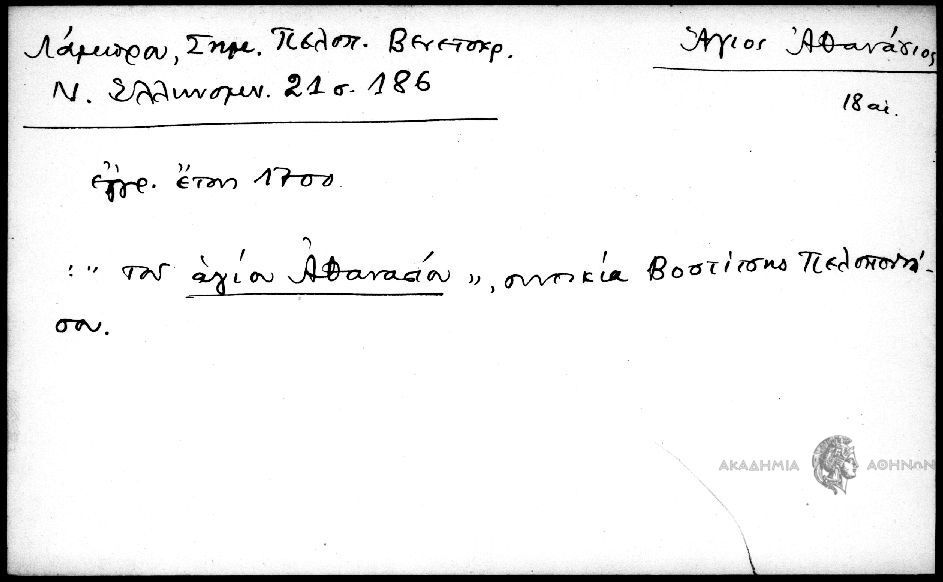 Λάμπρου, Σημ. Πελοπ. Βενετοκρ.
Ν. Ελληνομν. 21 σ. 186
Ἅγιος Ἀθανάσιος
18 αἰ.
ἔγγρ. ἔτους 1700
: " του ἁγίου Ἀθανασίου ", συνοικία Βοστίτσης Πελοποννή-
σου.
ΑΚΑΔΗΜΙΑ ΑΘΗΝΩΝ